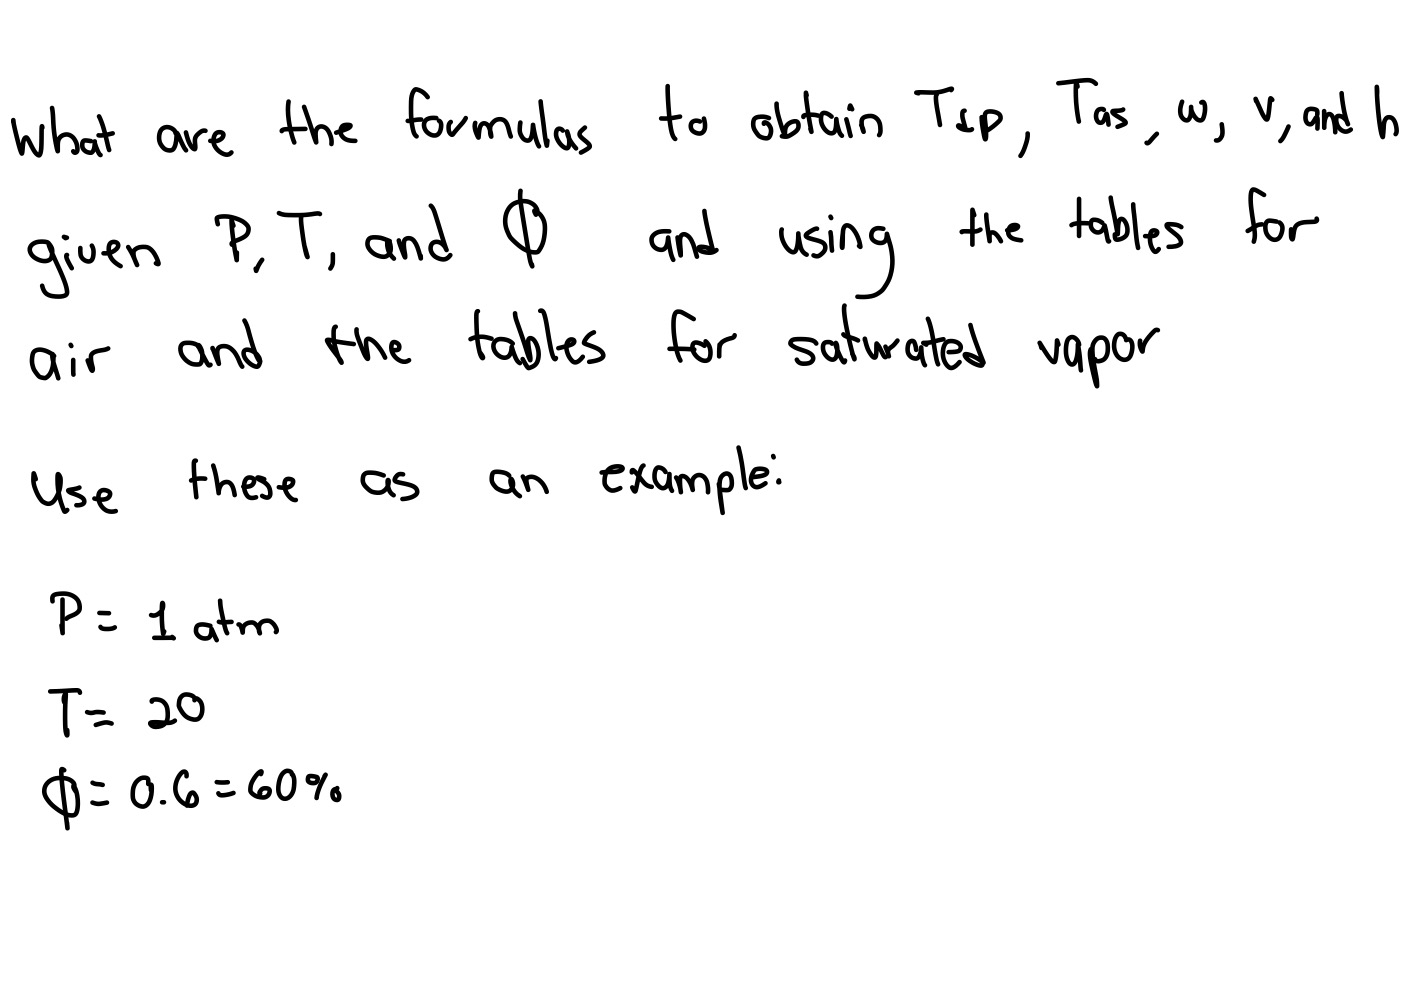 What are the formulas to obtain TIP, Tas, w, v, and h
given P, T, and Φ and using the tables for
air and the tables for saturated vapor
Use these as an example:
P= 1 atm
T= 20
Φ= 0.6 = 60%